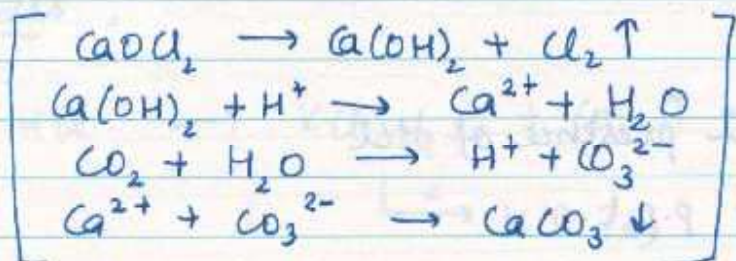 CaOCl₂ → Ca(OH)₂ + Cl₂ ↑
Ca(OH)₂ + H⁺ → Ca²⁺ + H₂O
CO₂ + H₂O → H⁺ + CO₃²⁻
Ca²⁺ + CO₃²⁻ → CaCO₃ ↓